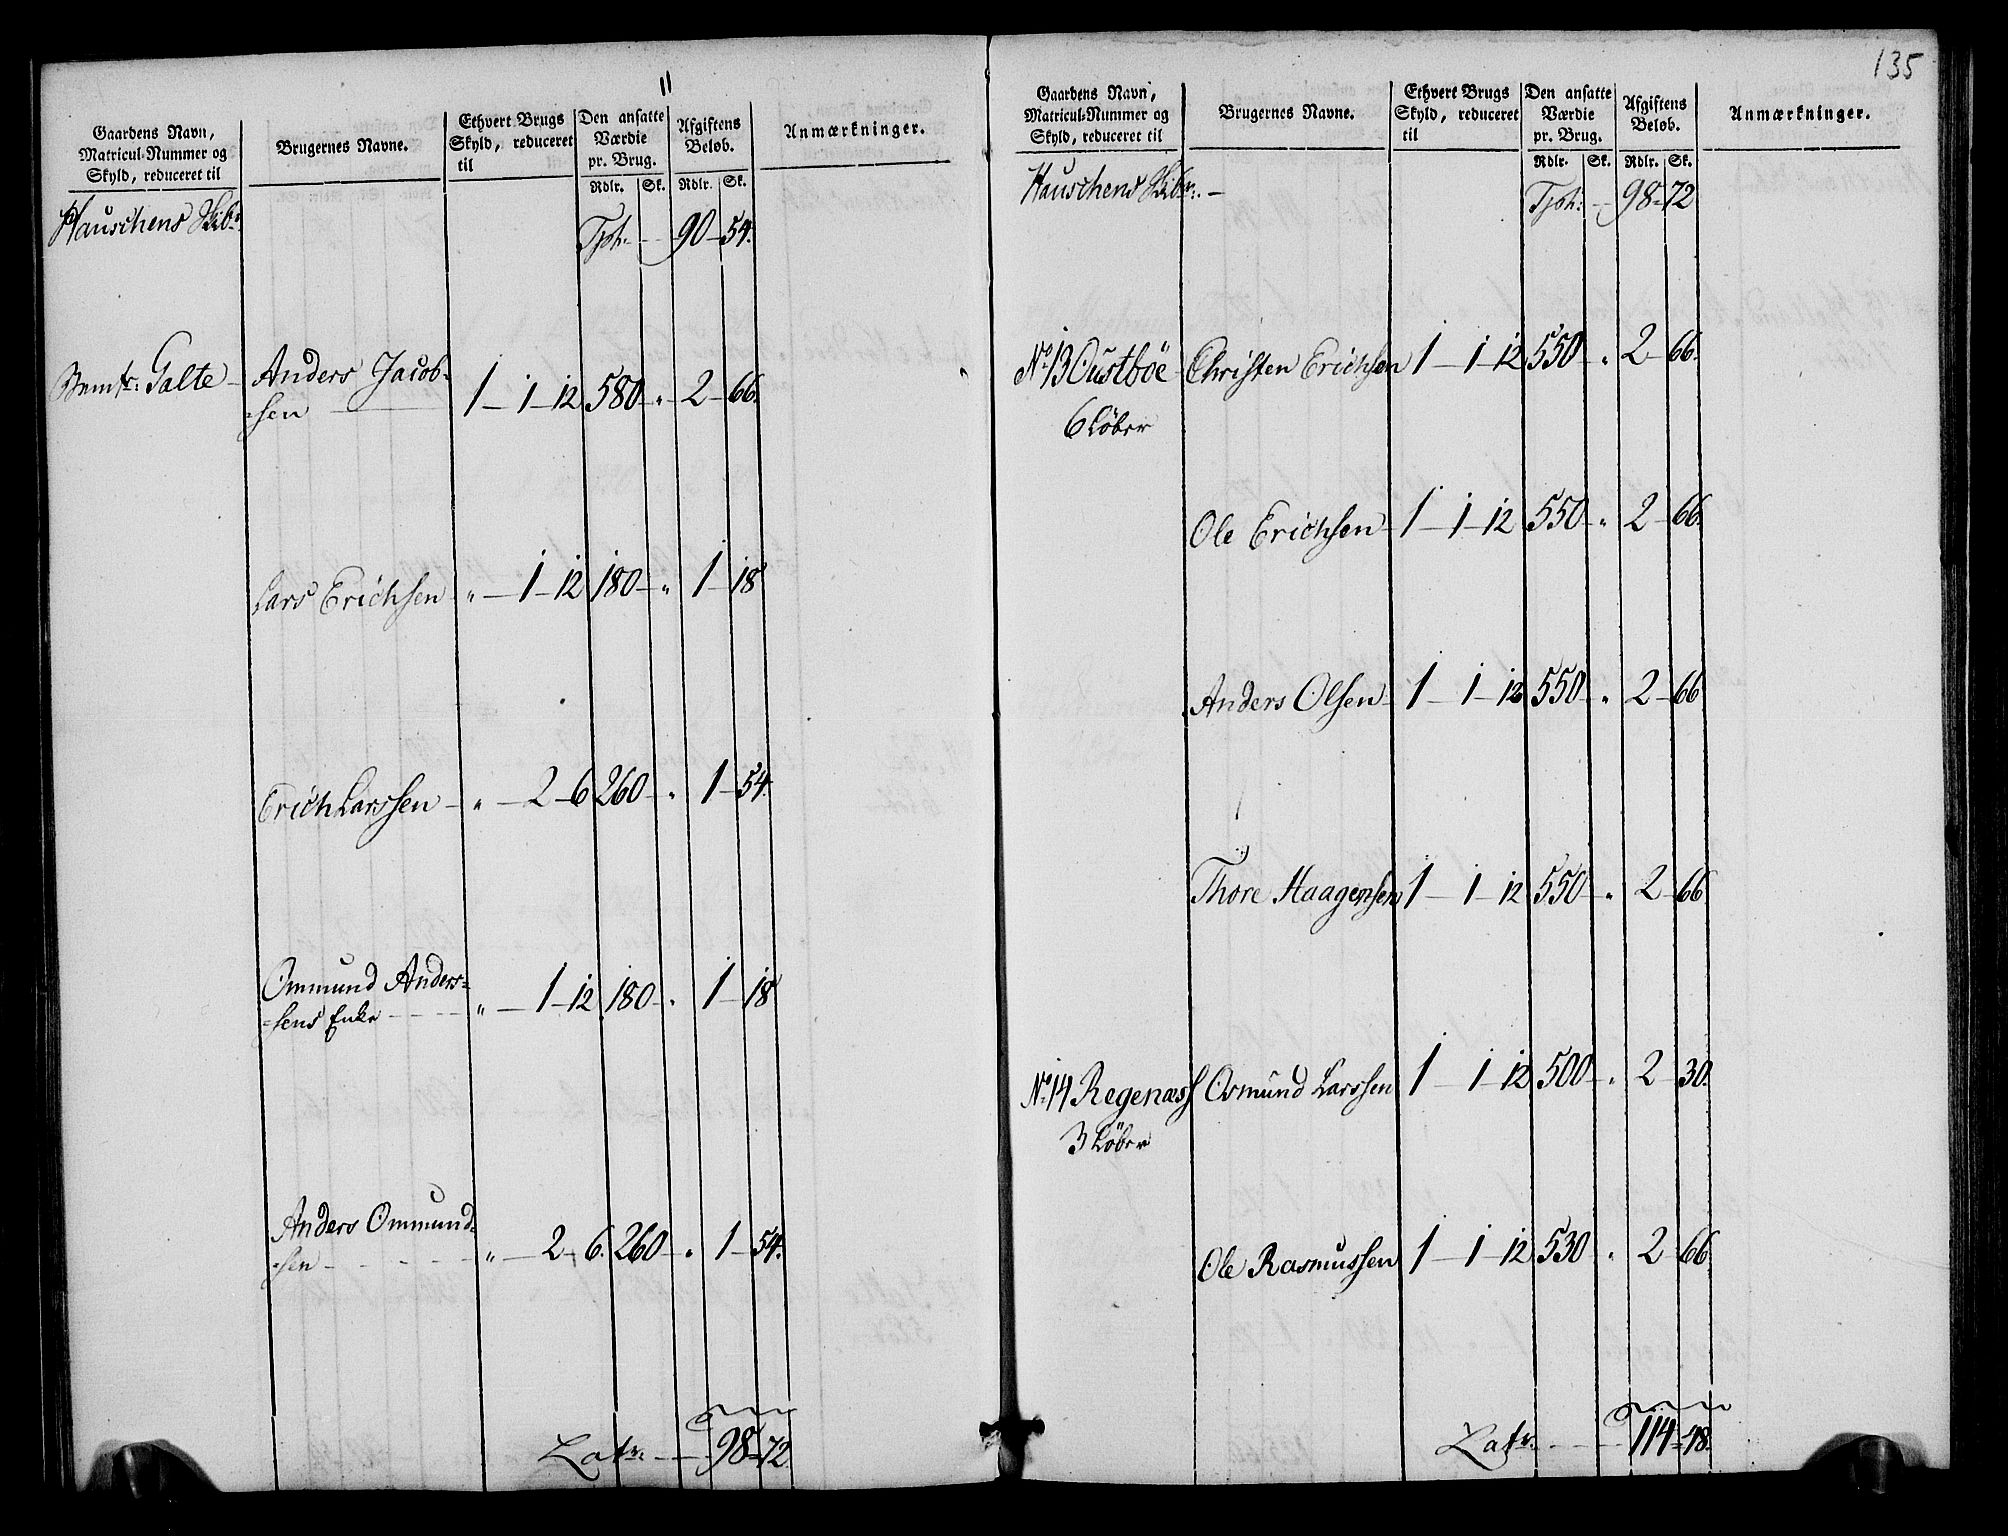 11
Gaardens Navn,
Matricul-Nummer og
Skyld, reduceret til
Brugernes Navne.
Ethvert Brugs
Skyld, reduceret
til
Den ansatte
Værdie
pr. Brug.
Rdlr. Sk.
Afgiftens
Beløb.
Rdlr. Sk.
Anmærkninger.
Hauschens Skibr:
Tpt: - - 90 - 54.
Galte - Anders Jacob-
=sen 1 - 1 - 12 580 - " - 2 - 66.
Lars Erichsen " - 1 - 12 180 - " - 1 - 18
Erich Larssen - " - 2 - 6 260 - " 1 - 54.
Ommund Anders=
=sens Enke - - - - " - 1 - 12 180 - " 1 - 18
Anders Ommund=
=sen - - - - - " - 2 - 6. 260 - " 1 - 54.
Latr: - - - 98 - 72.
135
Gaardens Navn,
Matricul-Nummer og
Skyld, reduceret til
Brugernes Navne.
Ethvert Brugs
Skyld, reduceret
til
Den ansatte
Værdie
pr. Brug.
Rdlr. Sk.
Afgiftens
Beløb.
Rdlr. Sk.
Anmærkninger.
Hauschens Skibr: -
Tpt: - - 98 - 72
No. 13 Oustböe Christen Erichsen 1 - 1 - 12 550 - " 2 - 66.
6 Löber
Ole Erichsen - 1 - 1 - 12 550 - " 2 - 66.
Anders Olsen - 1 - 1 - 12 550 - " 2 - 66
Thore Haagensen 1 - 1 - 12 550 - " 2 - 66
No. 14 Regenæss Osmund Larssen 1 - 1 - 12 500 - " 2 - 30.
3 Löber
Ole Rasmussen 1 - 1 - 12 530 " 2 - 66.
Latr. - - - - 114 - 48.